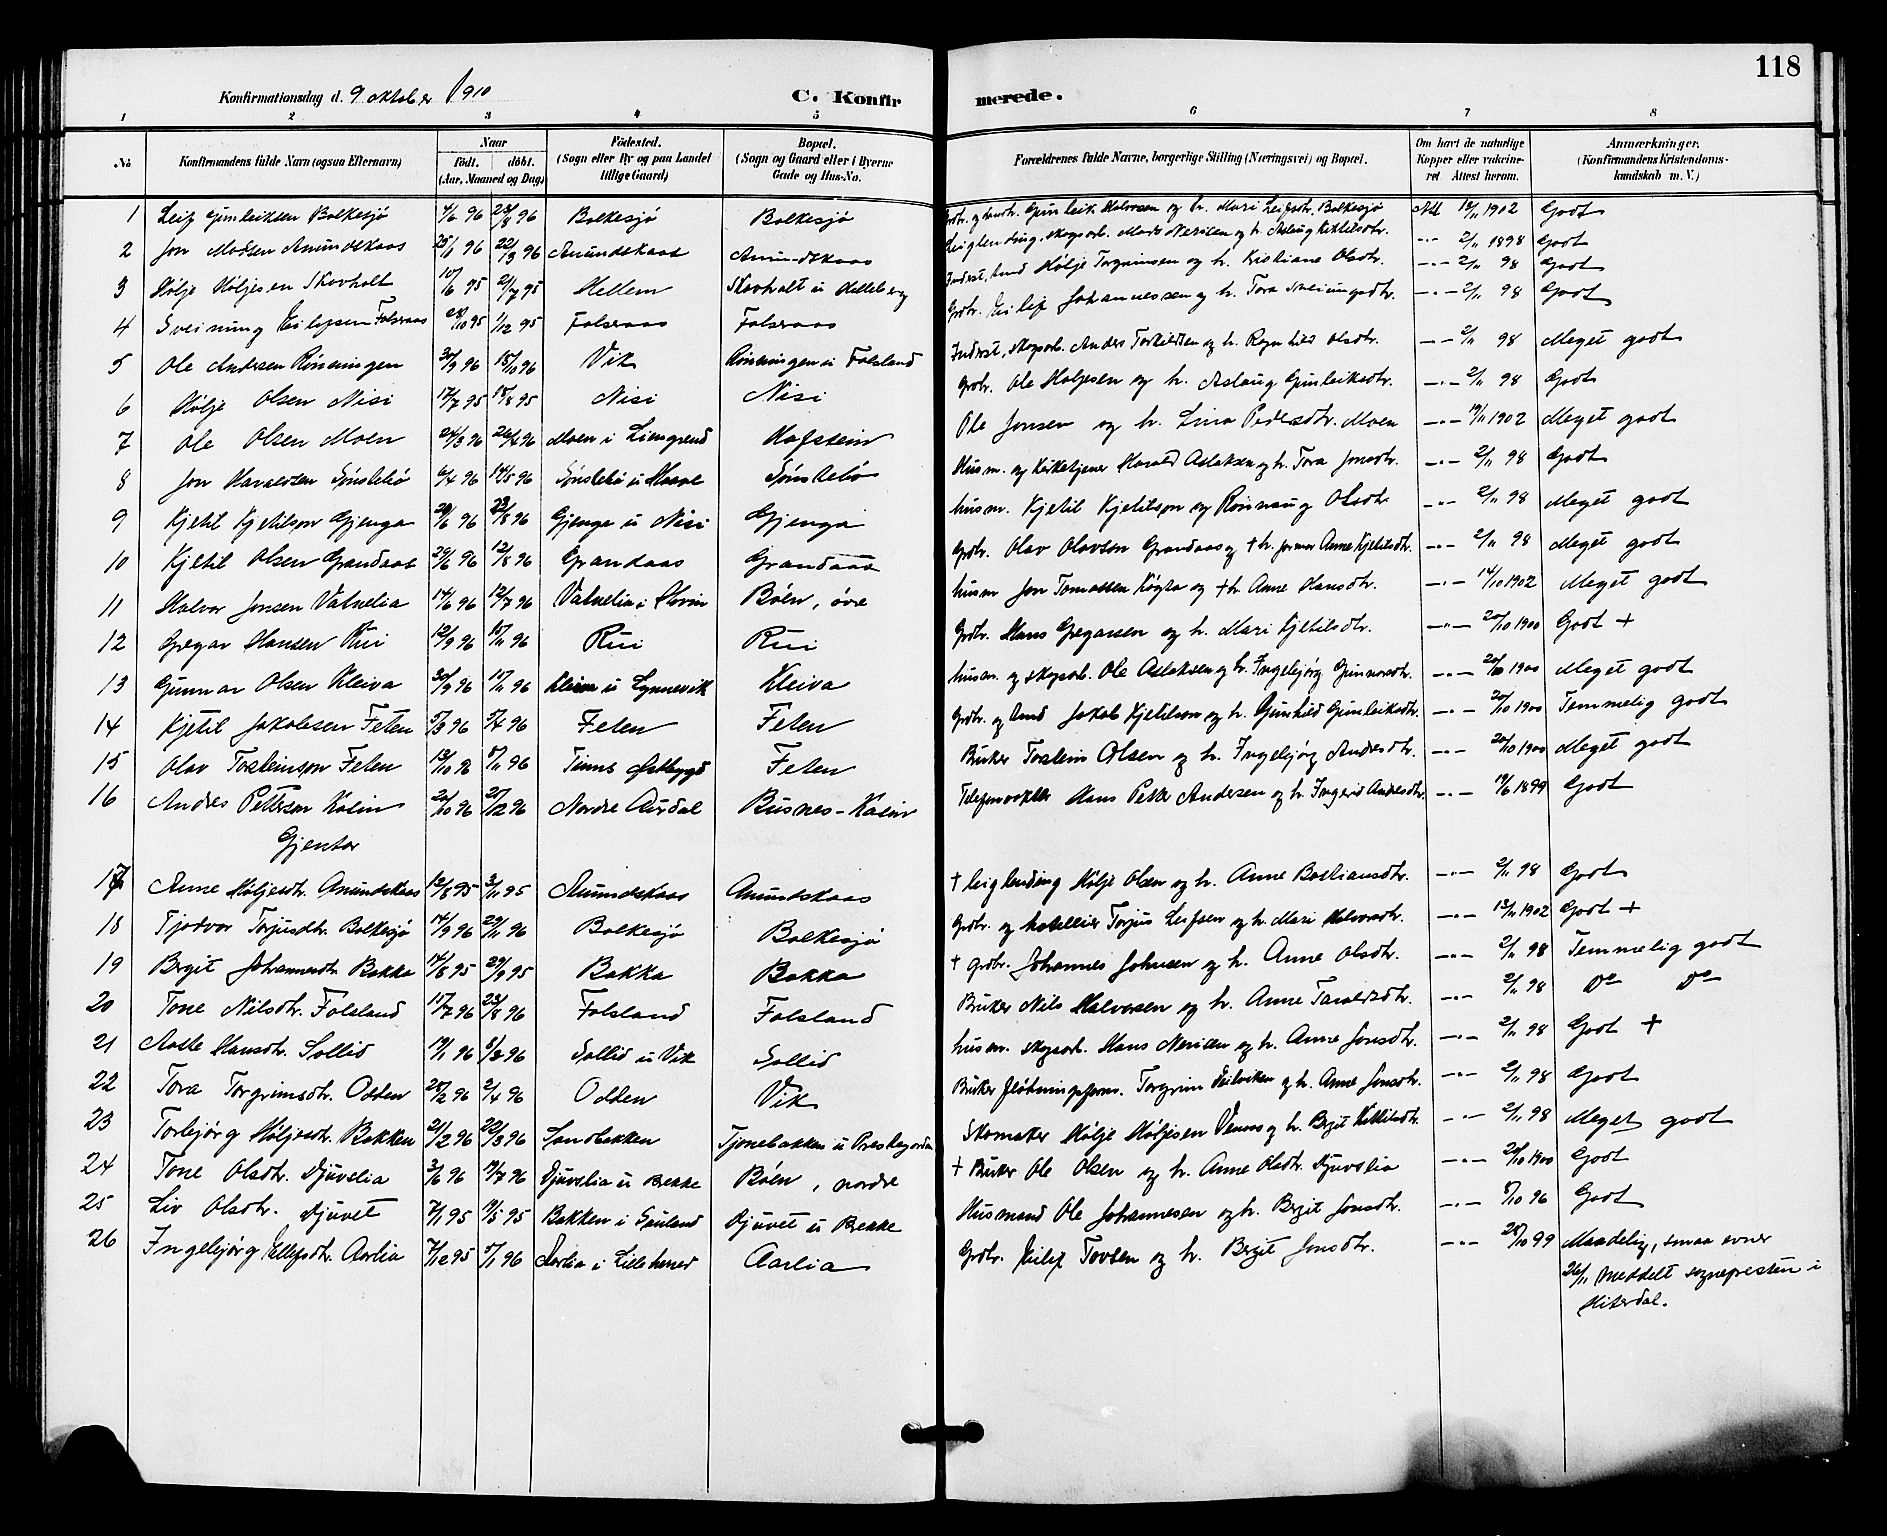 118
Konfirmationsdag d. 9 oktober 1910 C. Konfirmerede.
1 2 3 4 5 6 7 8
No. Konfirmandens fulde Navn (ogsaa Efternavn) Naar födt. döbt. (Aar, Maaned og Dag) Födested. (Sogn eller By og paa Landet tillige Gaard) Bopæl. (Sogn og Gaard eller i Byerne Gade og Hus-No. Forældrenes fulde Navne, borgerlige Stilling (Næringsvei) og Bopæl. Om havt de naturlige Kopper eller vakcineret Attest herom. Anmærkninger. (Konfirmandens Kristendomskundskab m. V.)
1 Leif Gunleiksen Bolkesjø 4/6 96 23/8 96 Bolkesjø Bolkesjø Gunleik Halvorsen og h. Mari Leifsdtr. Bolkesjø Att 13/11 1902 Godt
2 Jon Madsen Anundskaas 25/1 96 22/3 96 Anundskaas Anundskaas Leiglending, skogsarb. Mads Nerisen og h. Aslaug Kittilsdtr. -"- 2/11 1898 Godt
3 Hølje Høljesen Skovholt 10/6 95 21/7 95 Hellem Skovholt u Helleberg Inderst, Hølje Torgrimsen og h. Kristiane Olsdtr. -"- 2/11 98 Godt
4 Sveinung Eilefsen Folseraas 28/10 95 1/12 95 Folseraas Folseraas Grdbr. Eilef Johannessen og h. Tora Sveinungsdtr. -"- 2/11 98 Godt
5 Ole Andersen Rønningen 30/9 96 18/10 96 Vik Rønningen u Folsland Inderst, skogsarb. Anders Torkildsen og h. Ragnhild Olsdtr. -"- 2/11 98 Meget godt
6 Hølje Olsen Nisi 17/7 95 18/8 95 Nisi Nisi Grdbr. Ole Høljesen og h. Aslaug Gunleiksdtr. -"- 2/11 98 Godt
7 Ole Olsen Moen 24/3 96 26/4 96 Moen i Liengrend Hafstein Ole Jonsen og h. Lina Pedersdtr. Moen -"- 19/11 1902 Meget godt
8 Jon Haraldsen Sønstebø 6/4 96 14/5 96 Sønstebø u Haave Sønstebø Husm. og Kirketjener Harald Aslaksen og h. Tora Jonsdtr. -"- 2/11 98 Godt
9 Kjetil Kjetilson Gjenga 29/6 96 23/8 96 Gjenga u Nisi Gjenga husm. Kjetil Kjetilson og Rønnaug Olsdtr -"- 2/11 98 Meget godt
10 Kjetil Olsen Grandaas 29/6 96 12/8 96 Grandaas Grandaas Grdbr. Olav Olavson Grandaas og + h. Anne Kjetilsdtr. -"- 2/11 98 Meget godt
11 Halvor Jonsen Vatnelia 14/6 96 12/7 96 Vatnelia i Hovin Bøen, øvre husm Jon Tomassen og + h. Anne Hansdtr. -"- 14/10 1902 Meget godt
12 Gregar Hansen Rui 12/9 96 15/11 96 Rui Rui Grdbr. Hans Gregarsen og h. Mari Kjetilsdtr. -"- 20/10 1900 Godt +
13 Gunnar Olsen Kleiva 30/9 96 15/11 96 Kleiva u Lynnevik Kleiva husm. og skogsarb. Ole Aslaksen og h. Ingebjørg Gunnarsdtr. -"- 20/10 1900 Meget godt
14 Kjetil Jakobsen Feten 5/3 96 5/4 96 Feten Feten Grdbr. og Jakob Kjetilson og h. Gunhild Gunleiksdtr. -"- 20/10 1900 Temmelig godt
15 Olav Tosteinson Feten 13/10 96 8/11 96 Tinns Østbygd Feten Bruker Tostein Olsen og h. Ingebjørg Andersdtr. -"- 20/10 1900 Meget godt
16 Andres Pettersen Kasin 20/10 96 27/12 96 Nordre Aurdal Busnes-Kasin Hans Petter Andersen og h. Ingerid Andersdtr. -"- 14/6 1899 Godt
Gjentor
17 Anne Høljesdtr. Anundskaas 13/8 95 3/11 95 Anundskaas Anundskaas + leiglending Hølje Olsen og h. Anne Bastiansdtr. -"- 2/11 98 Godt
18 Tjodvor Torjusdtr. Bolkesjø 14/9 96 29/11 96 Bolkesjø Bolkesjø Grdbr. og hotellier Torjus Leifsen og h. Mari Halvorsdtr. -"- 13/11 1902 Godt +
19 Bergit Johannesdtr. Bakka 14/8 95 29/9 95 Bakka Bakka + Grdbr. Johannes Johnsen og h. Anne Olsdtr. -"- 2/11 98 Temmelig godt
20 Tone Nilsdtr. Folsland 17/7 96 23/8 96 Folsland Folsland Bruker Nils Halvorsen og h. Anne Taraldsdtr. -"- 2/11 98 Do Do
21 Aaste Hansdtr. Sollid 19/1 96 8/3 96 Sollid u Vik Sollid husm. skogsarb. Hans Nerisen og h. Anne Jonsdtr. -"- 2/11 98 Godt +
22 Tora Torgrimsdtr. Odden 28/2 96 2/4 96 Odden Vik Bruker fløtningsform. Torgrim og h. Anne Jonsdtr. -"- 2/11 98 Godt
23 Torbjørg Høljesdtr. Bakken 21/2 96 22/3 96 Sandbakken Tjønnebakken u Prestegorden Skomaker Hølje Høljesen og h. Bergit Kittilsdtr. -"- 2/11 98 Meget godt
24 Tone Olsdtr. Djuvelia 3/6 96 19/7 96 Djuvelia u Bekke Bøen, nordre + Bruker Ole Olsen og h. Anne Olsdtr. Djuvelia -"- 20/10 1900 Godt
25 Liv Olsdtr. Djuvet 7/1 95 19/5 95 Bakken i Sauland Djuvet u Bekke Husmand Ole Johannesen og h. Bergit Jonsdtr. -"- 8/10 96 Godt
26 Ingebjørg Eilefsdtr. Aarlia 7/12 95 5/1 96 Aarlia i Lilleherred Aarlia Grdbr. Eilef Tovsen og h. Bergit Jonsdtr. -"- 28/10 99 Maadelig, smaa evner
26/11 Meddelt sognepresten i
Hiterdal.